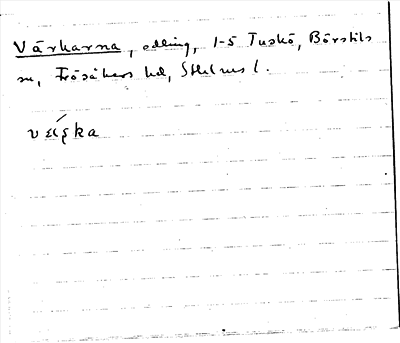 Vårkarna, odling, 1-5 Tuskö, Börstils
sn, Frösåkers hd, Sthlms l.